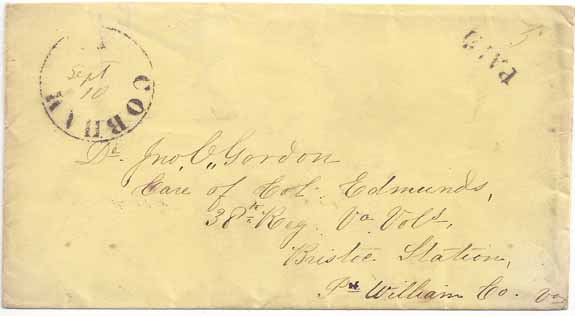 COBHAM
Sept
10
PAID
5
Dr. Jno, C,, Gordon
Care of Col. Edmunds,
38th Reg. Va Vols,
Bristoe Station,
Pr William Co. Va